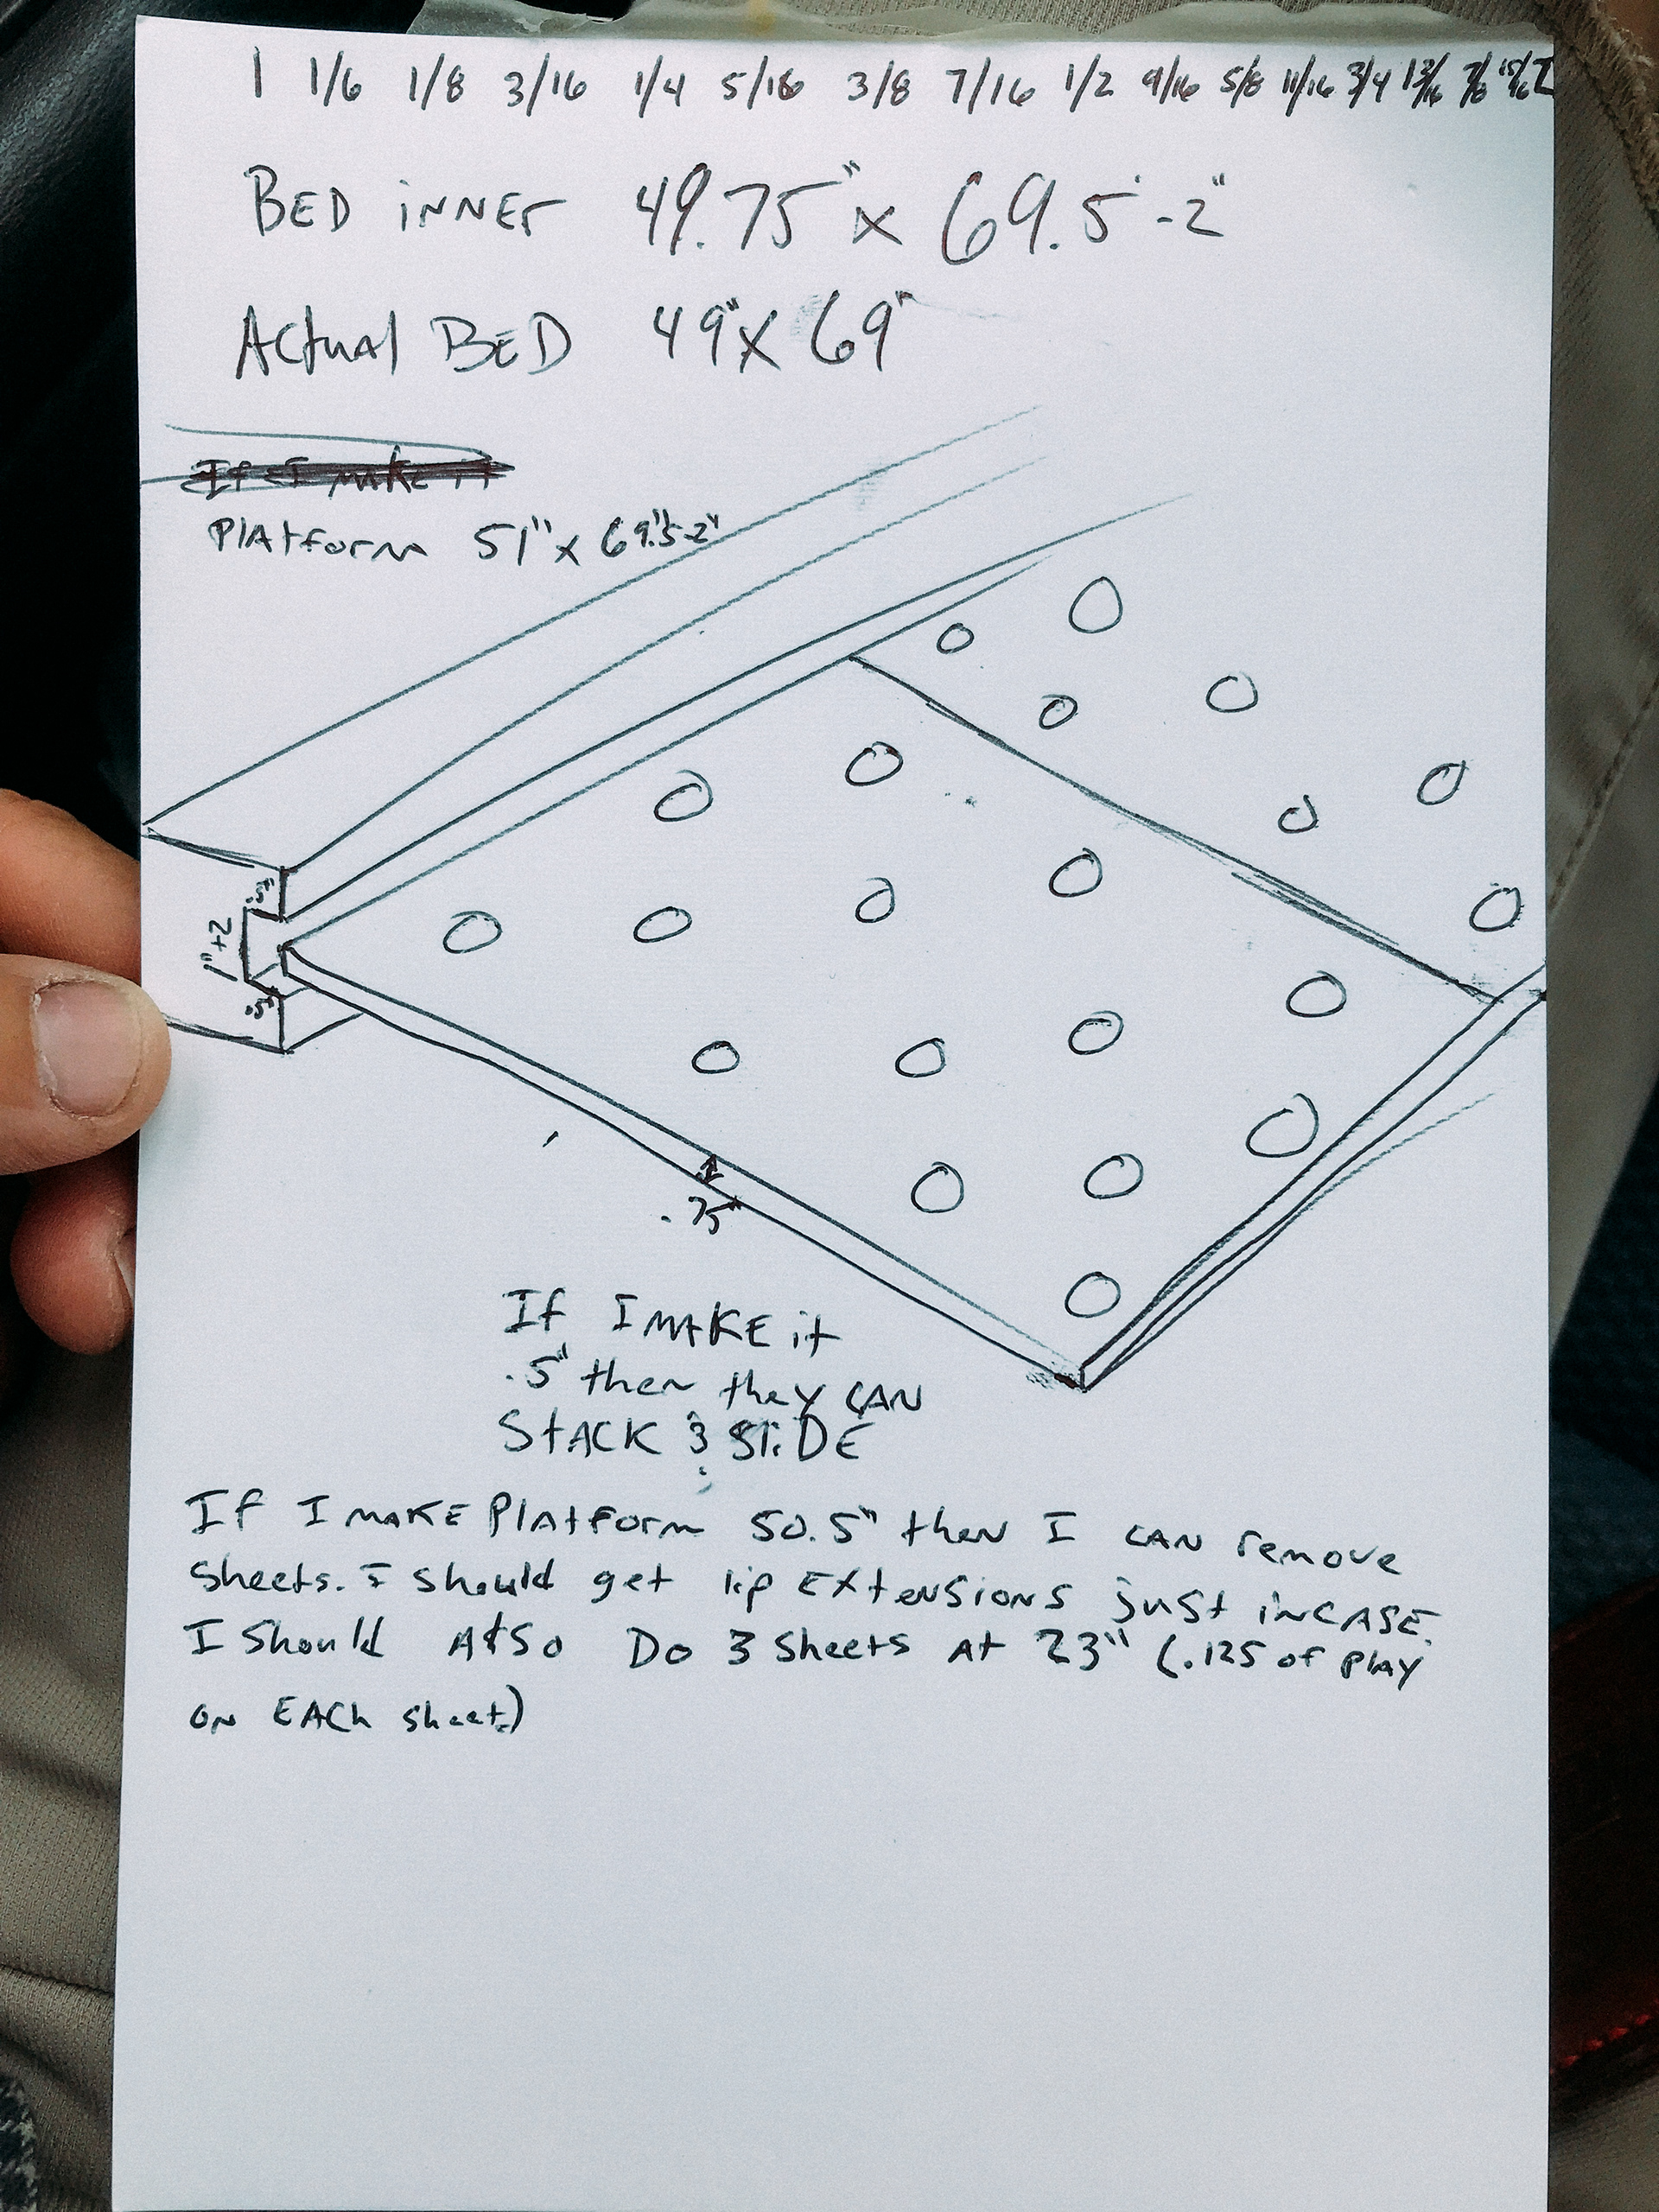 1 1/6 1/8 3/16 1/4 5/16 3/8 7/16 1/2 9/16 5/8 11/16 3/4 13/16 7/8 15/16
BED iNNEr 49.75" x 69.5-2"
Actual BED 49" x 69"
If I make it
Platform 51" x 69.5-2"
.5"
1"+2
.5"
.75"
If I MAKE it
.5" then they CAN
STACK & SLiDE
If I MAKE Platform 50.5" then I CAN remove
Sheets. I should get lip Extensions just inCASE.
I Should Also Do 3 Sheets At 23" (.125 of play
on EACh sheet)